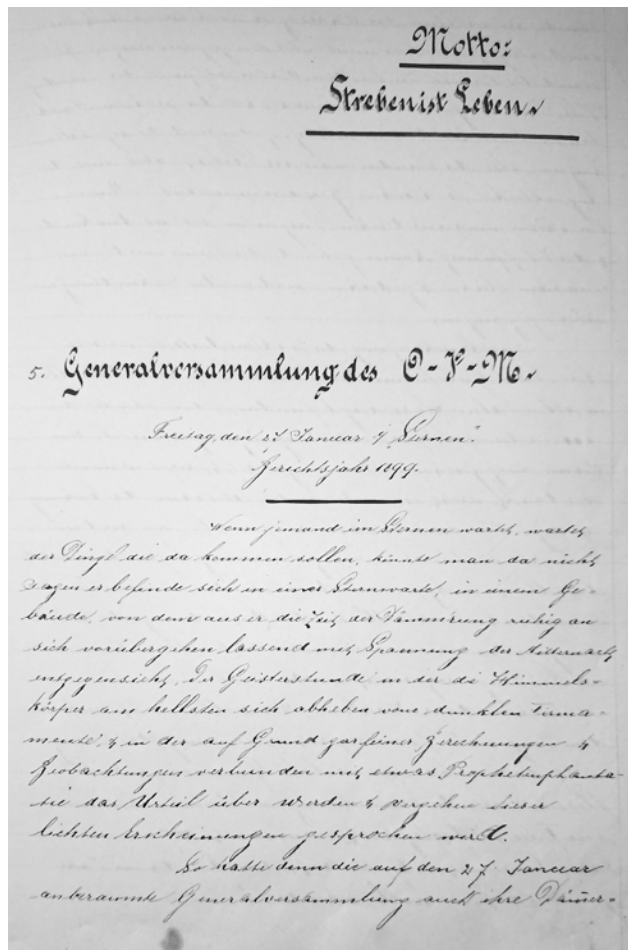 Motto:
Streben ist Leben.
5. Generalversammlung des O-V-M.
Freitag, den 27 Januar i/ "Sternen".
Berichtsjahr 1899.
Wenn jemand im Sternen wartet, wartet
der Dinge die da kommen sollen, könnte man da nicht
sagen er befinde sich in einer Sternwarte, in einem Ge-
bäude, von dem aus er die Zeit der Dämmerung ruhig an
sich vorübergehen lassend mit Spannung der Mitternacht
entgegensieht, Der Geisterstunde in der die Himmels-
körper am hellsten sich abheben vom dunklen Firma-
mente, & in der auf Grund gar feiner Berechnungen &
Beobachtungen verbunden mit etwas Prophetenphanta-
sie das Urteil über Werden & vergehen dieser
lichten Erscheinungen gesprochen wird.
So hatte denn die auf den 27. Januar
anberaumte Generalversammlung auch ihre Däm̄er-